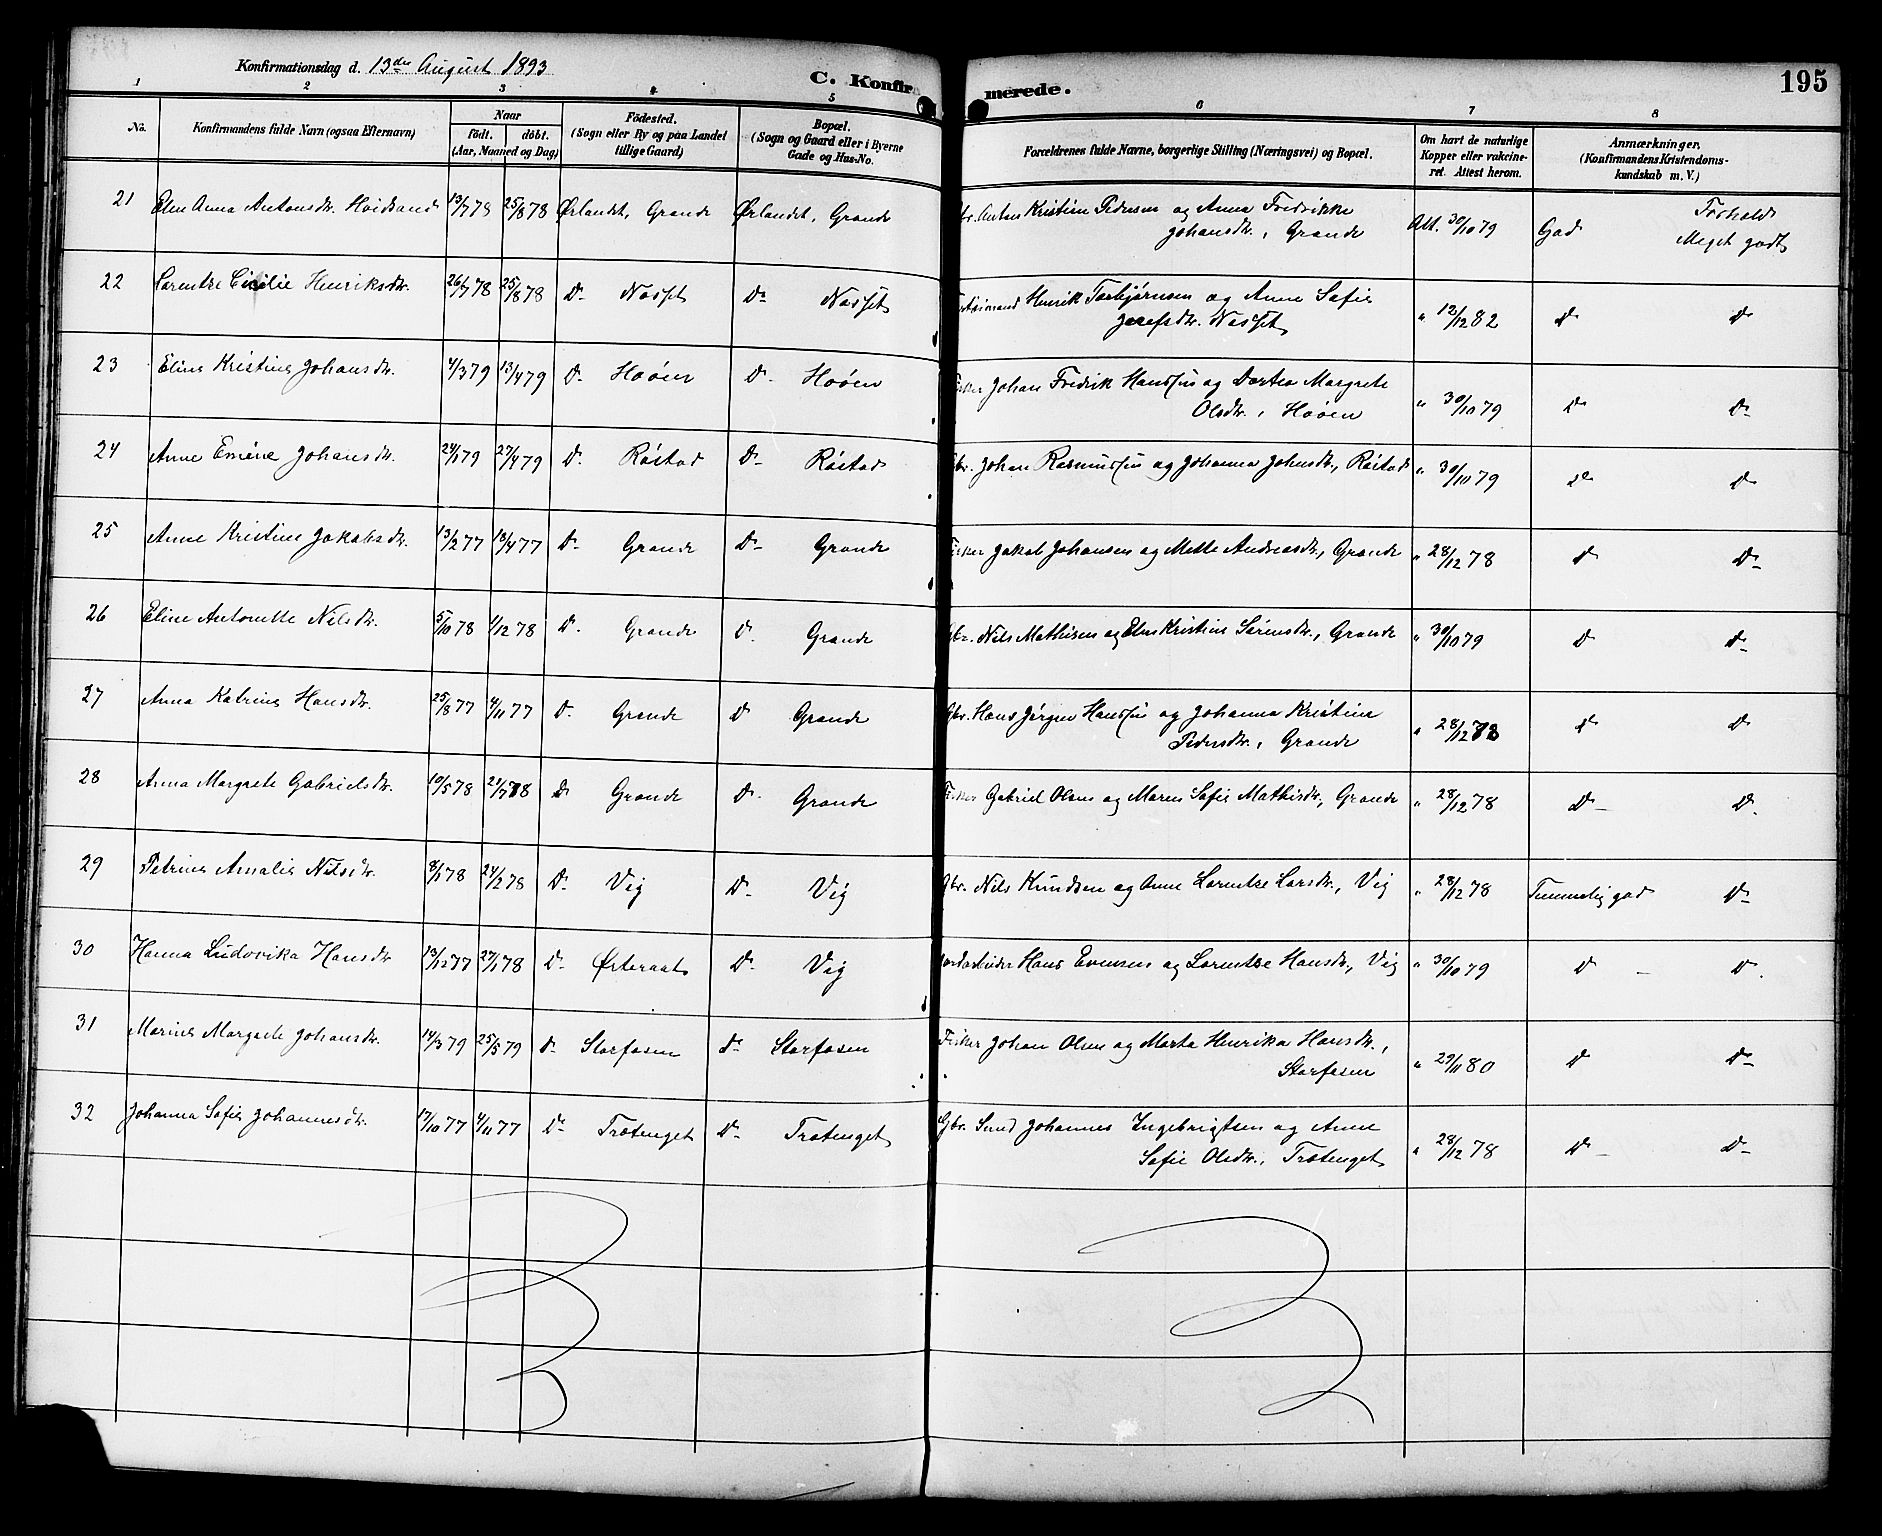 Konfirmationsdag d. 13de August 1893
C. Konfirmerede.
195
1 2 3 4 5 6 7 8
No. Konfirmandens fulde Navn (ogsaa Efternavn) Naar født. døbt. (Aar, Maaned og Dag) Fødested. (Sogn eller By og paa Landet tillige Gaard) Bopæl. (Sogn og Gaard eller i Byerne Gade og Hus-No. Forældrenes fulde Navne, borgerlige Stilling (Næringsvei) og Bopæl. Om havt de naturlige Kopper eller vakcineret. Attest herom. Anmærkninger, (Konfirmandens Kristendomskundskab m. V.)
21 Elen Anna Antonsdtr. Hoidsand 13/7 78 25/8 78 Ørlandet, Grande Ørlandet, Grande Gbr. Anton Kristian Pedersen og Anna Fredrikke Johansdtr., Grande Att. 30/10 79 God Forhold Meget godt
22 Lorentze Cicilie Henriksdtr. 26/7 78 25/8 78 Do Næsset Do Næsset Henrik Torbjørnsen og Anne Sofie Josefsdtr. Næsset " 12/12 82 Do Do
23 Eline Kristine Johansdtr. 4/3 79 13/4 79 Do Hoøen Do Hoøen Fisker Johan Fredrik Hanssen og Dortea Margrete Olsdtr., Hoøen " 30/10 79 Do Do
24 Anne Emine Johansdtr. 24/1 79 27/4 79 Do Røstad Do Røstad Gbr. Johan Rasmussen og Johanna Johnsdtr., Røstad " 30/10 79 Do Do
25 Anne Kristine Jakobsdtr. 13/2 77 13/4 77 Do Grande Do Grande Fisker Jakob Johansen og Mette Andreasdtr., Grande " 28/12 78 Do Do
26 Eline Antonette Nilsdtr. 5/10 78 1/12 78 Do Grande Do Grande Gbr. Nils Mathisen og Elen Kristine Sørensdtr., Grande " 30/10 79 Do Do
27 Anna Katrine Hansdtr. 25/8 77 4/11 77 Do Grande Do Grande Gbr. Hans Jørgen Hanssen og Johanna Kristine Pedersdtr., Grande " 28/12 78 Do Do
28 Anna Margrete Gabrielsdtr. 10/5 78 21/7 78 Do Grande Do Grande Fisker Gabriel Olsen og Maren Sofie Mathisdtr., Grande " 28/12 78 Do Do
29 Petrine Amalie Nilsdtr. 8/1 78 24/2 78 Do Vig Do Vig Gbr. Nils Knudsen og Anne Lorentze Larsdtr., Vig " 28/12 78 Temmelig god Do
30 Hanna Ludovika Hansdtr. 13/12 77 27/1 78 Do Østeraat Do Vig Hans Evensen og Lorentze Hansdtr., Vig " 30/10 79 Do Do
31 Marine Margrete Johansdtr. 14/3 79 25/5 79 Do Storfosen Do Storfosen Fisker Johan Olsen og Marta Henrika Hansdtr., Storfosen " 29/11 80 Do Do
32 Johanna Sofie Johannesdtr. 17/10 77 4/11 77 Do Trøtenget Do Trøtenget Gbr. Smed Johannes Ingebrigtsen og Anne Sofie Olsdtr., Trøtenget " 28/12 78 Do Do